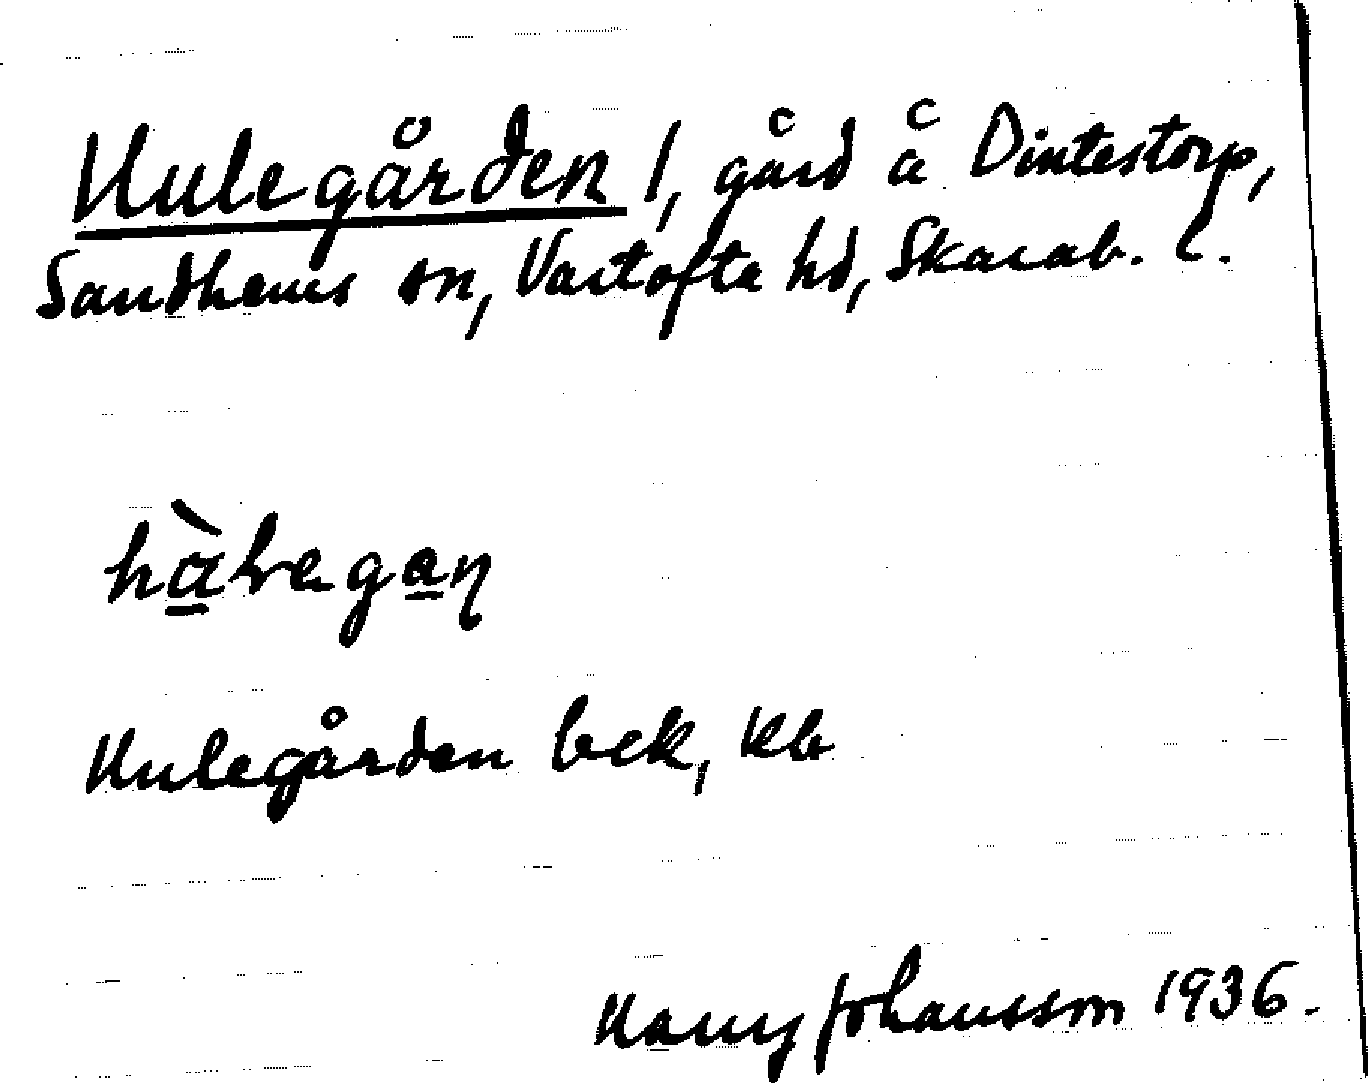 Hulegården 1, gård å Dintestorp,
Sandhems sn, Vartofta hd, Skarab. l.
Hulegården bek, kb
Harry Johansson 1936.